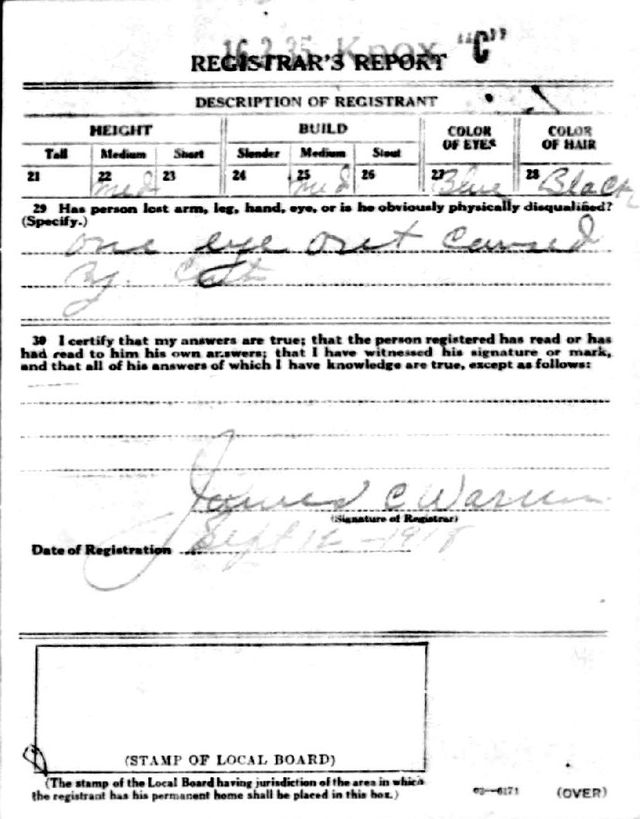 16 2 35 Knox "C"
REGISTRAR'S REPORT
DESCRIPTION OF REGISTRANT
HEIGHT BUILD COLOR OF EYES COLOR OF HAIR
Tall Medium Short Slender Medium Stout
21 22 Med 23 24 25 Med 26 27 Blue 28 Black
29 Has person lost arm, leg, hand, eye, or is he obviously physically disqualified?
(Specify.)
one eye out caused
By.
30 I certify that my answers are true; that the person registered has read or has
had read to him his own answers; that I have witnessed his signature or mark,
and that all of his answers of which I have knowledge are true, except as follows:
James C Warren
(Signature of Registrar)
Date of Registration Sept 12-1918
(STAMP OF LOCAL BOARD)
(The stamp of the Local Board having jurisdiction of the area in which
the registrant has his permanent home shall be placed in this box.)
03—6171 (OVER)